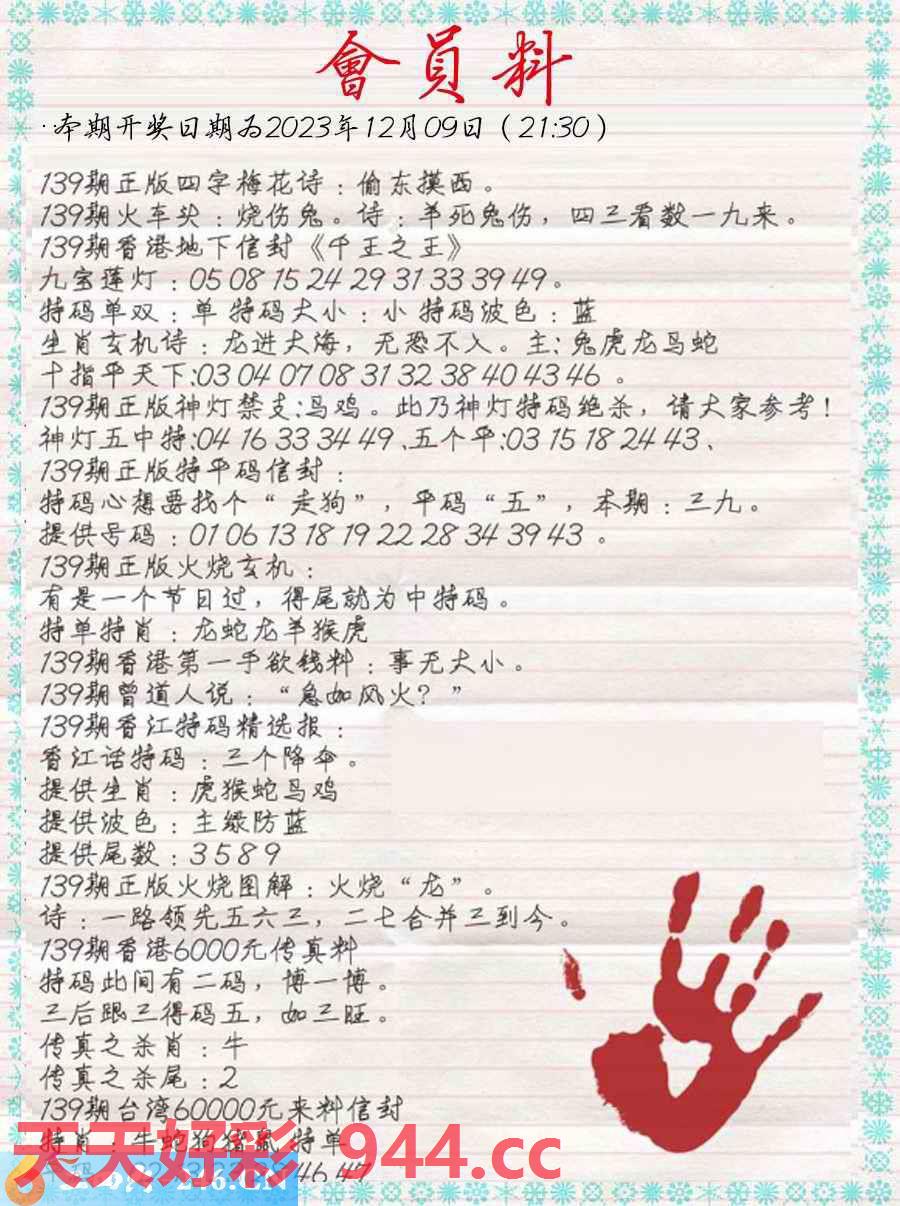 會員料
·本期开奖日期为2023年12月09日（21:30）
139期正版四字梅花诗：偷东摸西。
139期火车头：烧伤兔。诗：羊死兔伤，四三看数一九来。
139期香港地下信封《千王之王》
九宝莲灯：05 08 15 24 29 31 33 39 49。
特码单双：单 特码大小：小 特码波色：蓝
生肖玄机诗：龙进大海，无恐不入。主:兔虎龙马蛇
十指平天下:03 04 07 08 31 32 38 40 43 46 。
139期正版神灯禁支:马鸡。此乃神灯特码绝杀，请大家参考！
神灯五中特:04 16 33 34 49 、五个平:03 15 18 24 43、
139期正版特平码信封：
特码心想要找个“走狗”，平码“五”，本期：三九。
提供号码：01 06 13 18 19 22 28 34 39 43 。
139期正版火烧玄机：
有是一个节日过，得尾就为中特码。
特单特肖：龙蛇龙羊猴虎
139期香港第一手欲钱料：事无大小。
139期曾道人说：“急如风火？”
139期香江特码精选报：
香江话特码：三个降伞。
提供生肖：虎猴蛇马鸡
提供波色：主绿防蓝
提供尾数：3 5 8 9
139期正版火烧图解：火烧“龙”。
诗：一路领先五六三，二七合并三到今。
139期香港6000元传真料
特码此间有二码，博一博。
三后跟三得码五，如三旺。
传真之杀肖：牛
传真之杀尾：2
139期台湾60000元来料信封
特肖：牛蛇狗猪鼠 特单
天天好彩 944.cc
46 47
246.CN